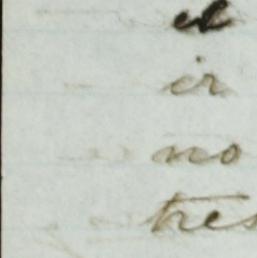 el
ir
no
tres